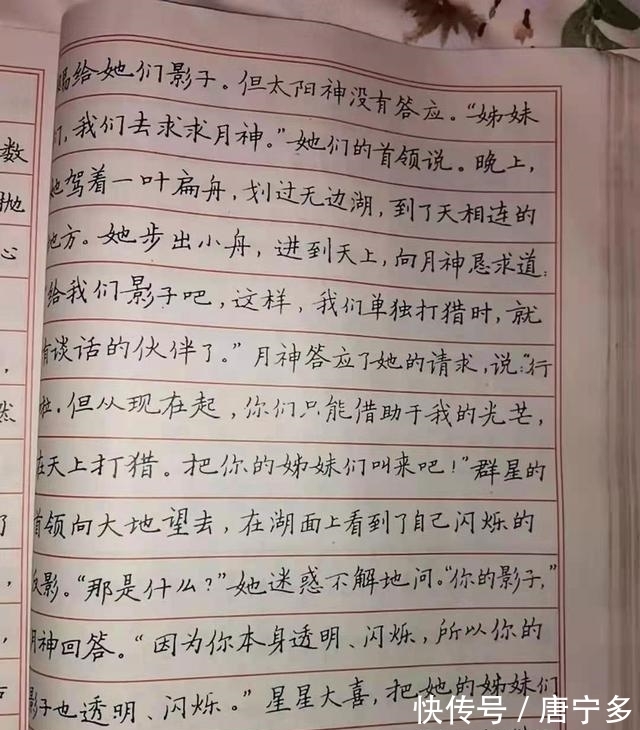 赐给她们影子。但太阳神没有答应。“姊妹
们,我们去求求月神。”她们的首领说。晚上,
她驾着一叶扁舟,划过无边湖,到了天相连的
地方。她步出小舟,进到天上,向月神恳求道:
“给我们影子吧,这样,我们单独打猎时,就
有谈话的伙伴了。”月神答应了她的请求,说:“行
啦,但从现在起,你们只能借助于我的光芒,
在天上打猎。把你的姊妹们叫来吧!”群星的
首领向大地望去,在湖面上看到了自己闪烁的
反影。“那是什么?”她迷惑不解地问。“你的影子,”
月神回答。“因为你本身透明、闪烁,所以你的
影子也透明、闪烁。”星星大喜,把她的姊妹们
数
抛
心
,
然
了
,
快传号/唐宁多